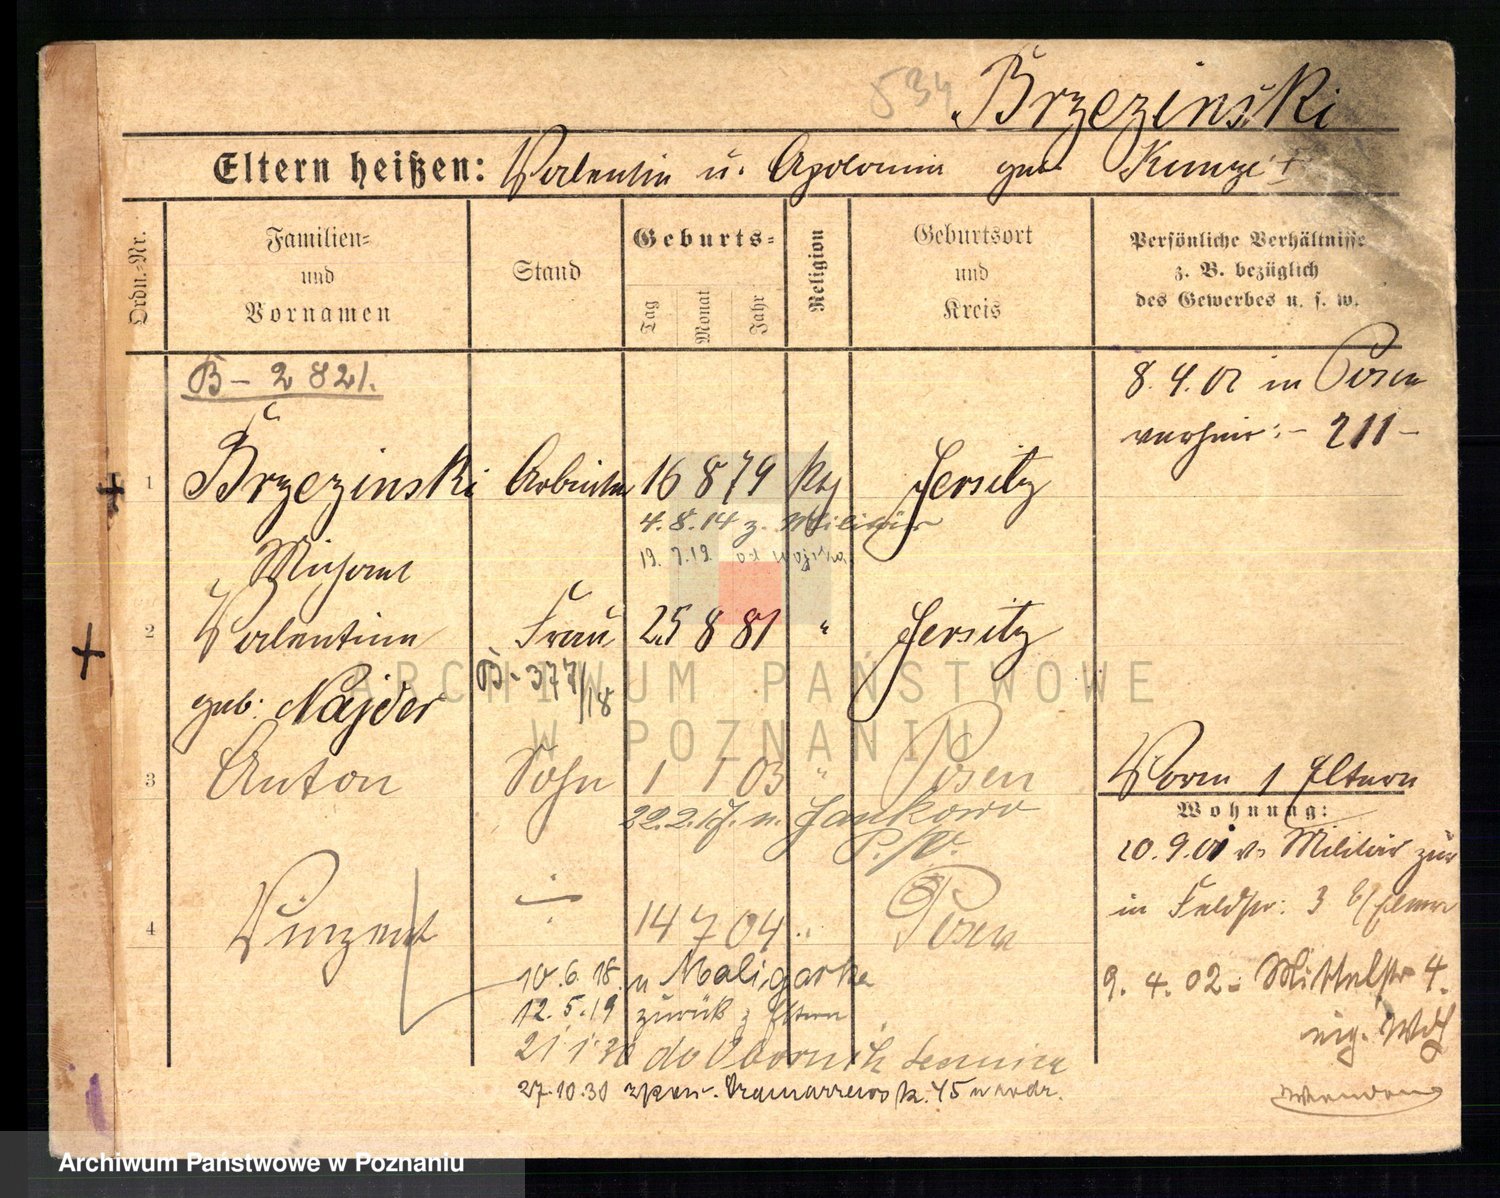 534 Brzezinski
Eltern heißen: Valentin u. Apolonia geb. Kunze †
Ordn.-Nr.
Familien- und Vornamen
Stand
Geburts-
Tag Monat Jahr
Religion
Geburtsort und Kreis
Persönliche Verhältnisse z. B. bezüglich des Gewerbes u. s. w.
B - 2821.
8.4.02 in Posen
verheir: - 211 -
1 Brzezinski Arbeiter 16 8 79 kth Jersitz
4.8.14 z. Militär
Michael
2 Valentine Frau 25 8 81 " Jersitz
B - 377/18
geb: Najder
3 Anton Sohn 1 1 03 " Posen
22.2.17. n. Jankowo
Vorm 1 Eltern
Wohnung:
20.9.01 v. Militär zur
in Feldstr: 3 b/ Eltern
4 Vinzent 14 7 04 " Posen
10.6.18. n Maligarke
9.4.02 - Mittelstr 4.
12.5.19 zurück z Eltern
eig. Whg
21 1 30 do Obornik
27.10.30
Wenden
ARCHIWUM PAŃSTWOWE
W POZNANIU
Archiwum Państwowe w Poznaniu